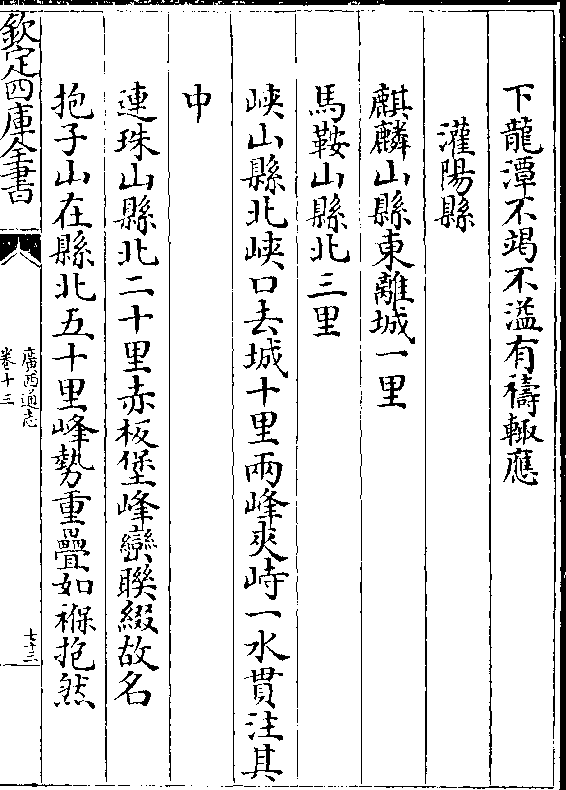 下龍潭不竭不溢有禱輙應
灌陽縣
麒麟山縣東離城一里
馬鞍山縣北三里
峽山縣北峽口去城十里兩峰夾峙一水貫注其
中
連珠山縣北二十里赤板堡峰巒聯綴故名
抱子山在縣北五十里峰勢重疊如褓抱然
欽定四庫全書
廣西通志
卷十三
七十三